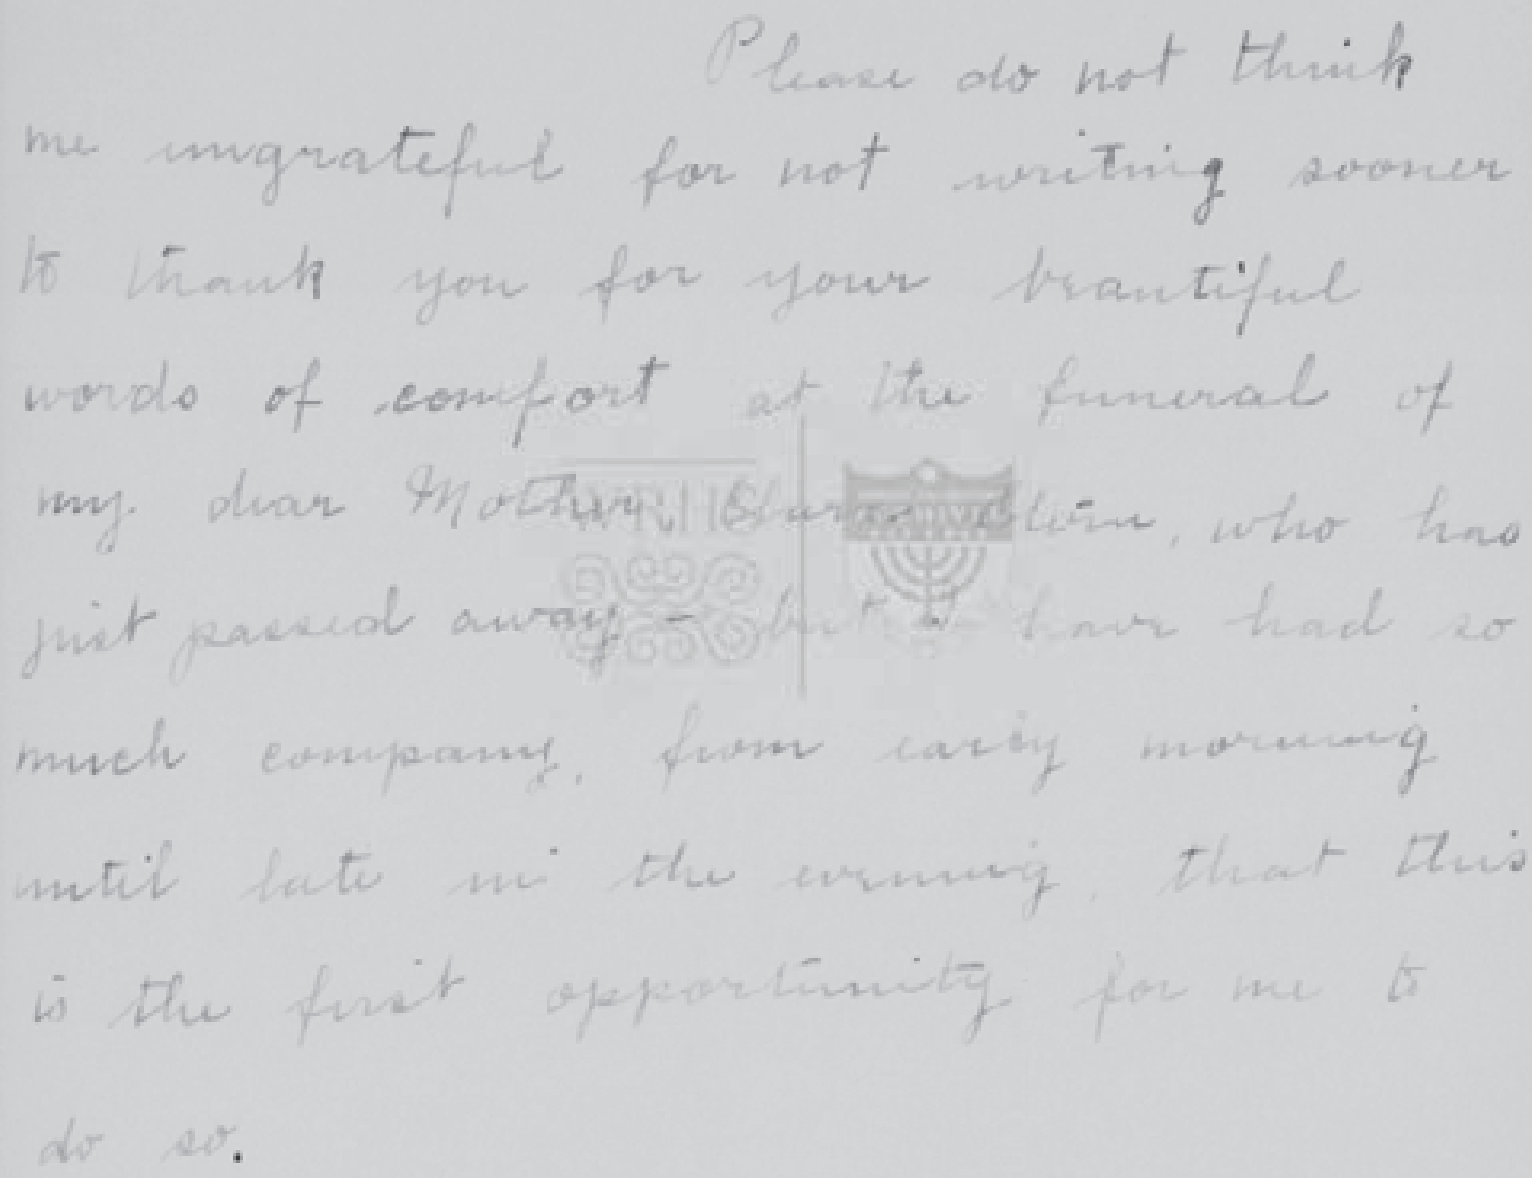 Please do not think
me ungrateful for not writing sooner
to thank you for your beautiful
words of comfort at the funeral of
my dear Mother, who has
just passed away - but I have had so
much company, from early morning
until late in the evening, that this
is the first opportunity for me to
do so.